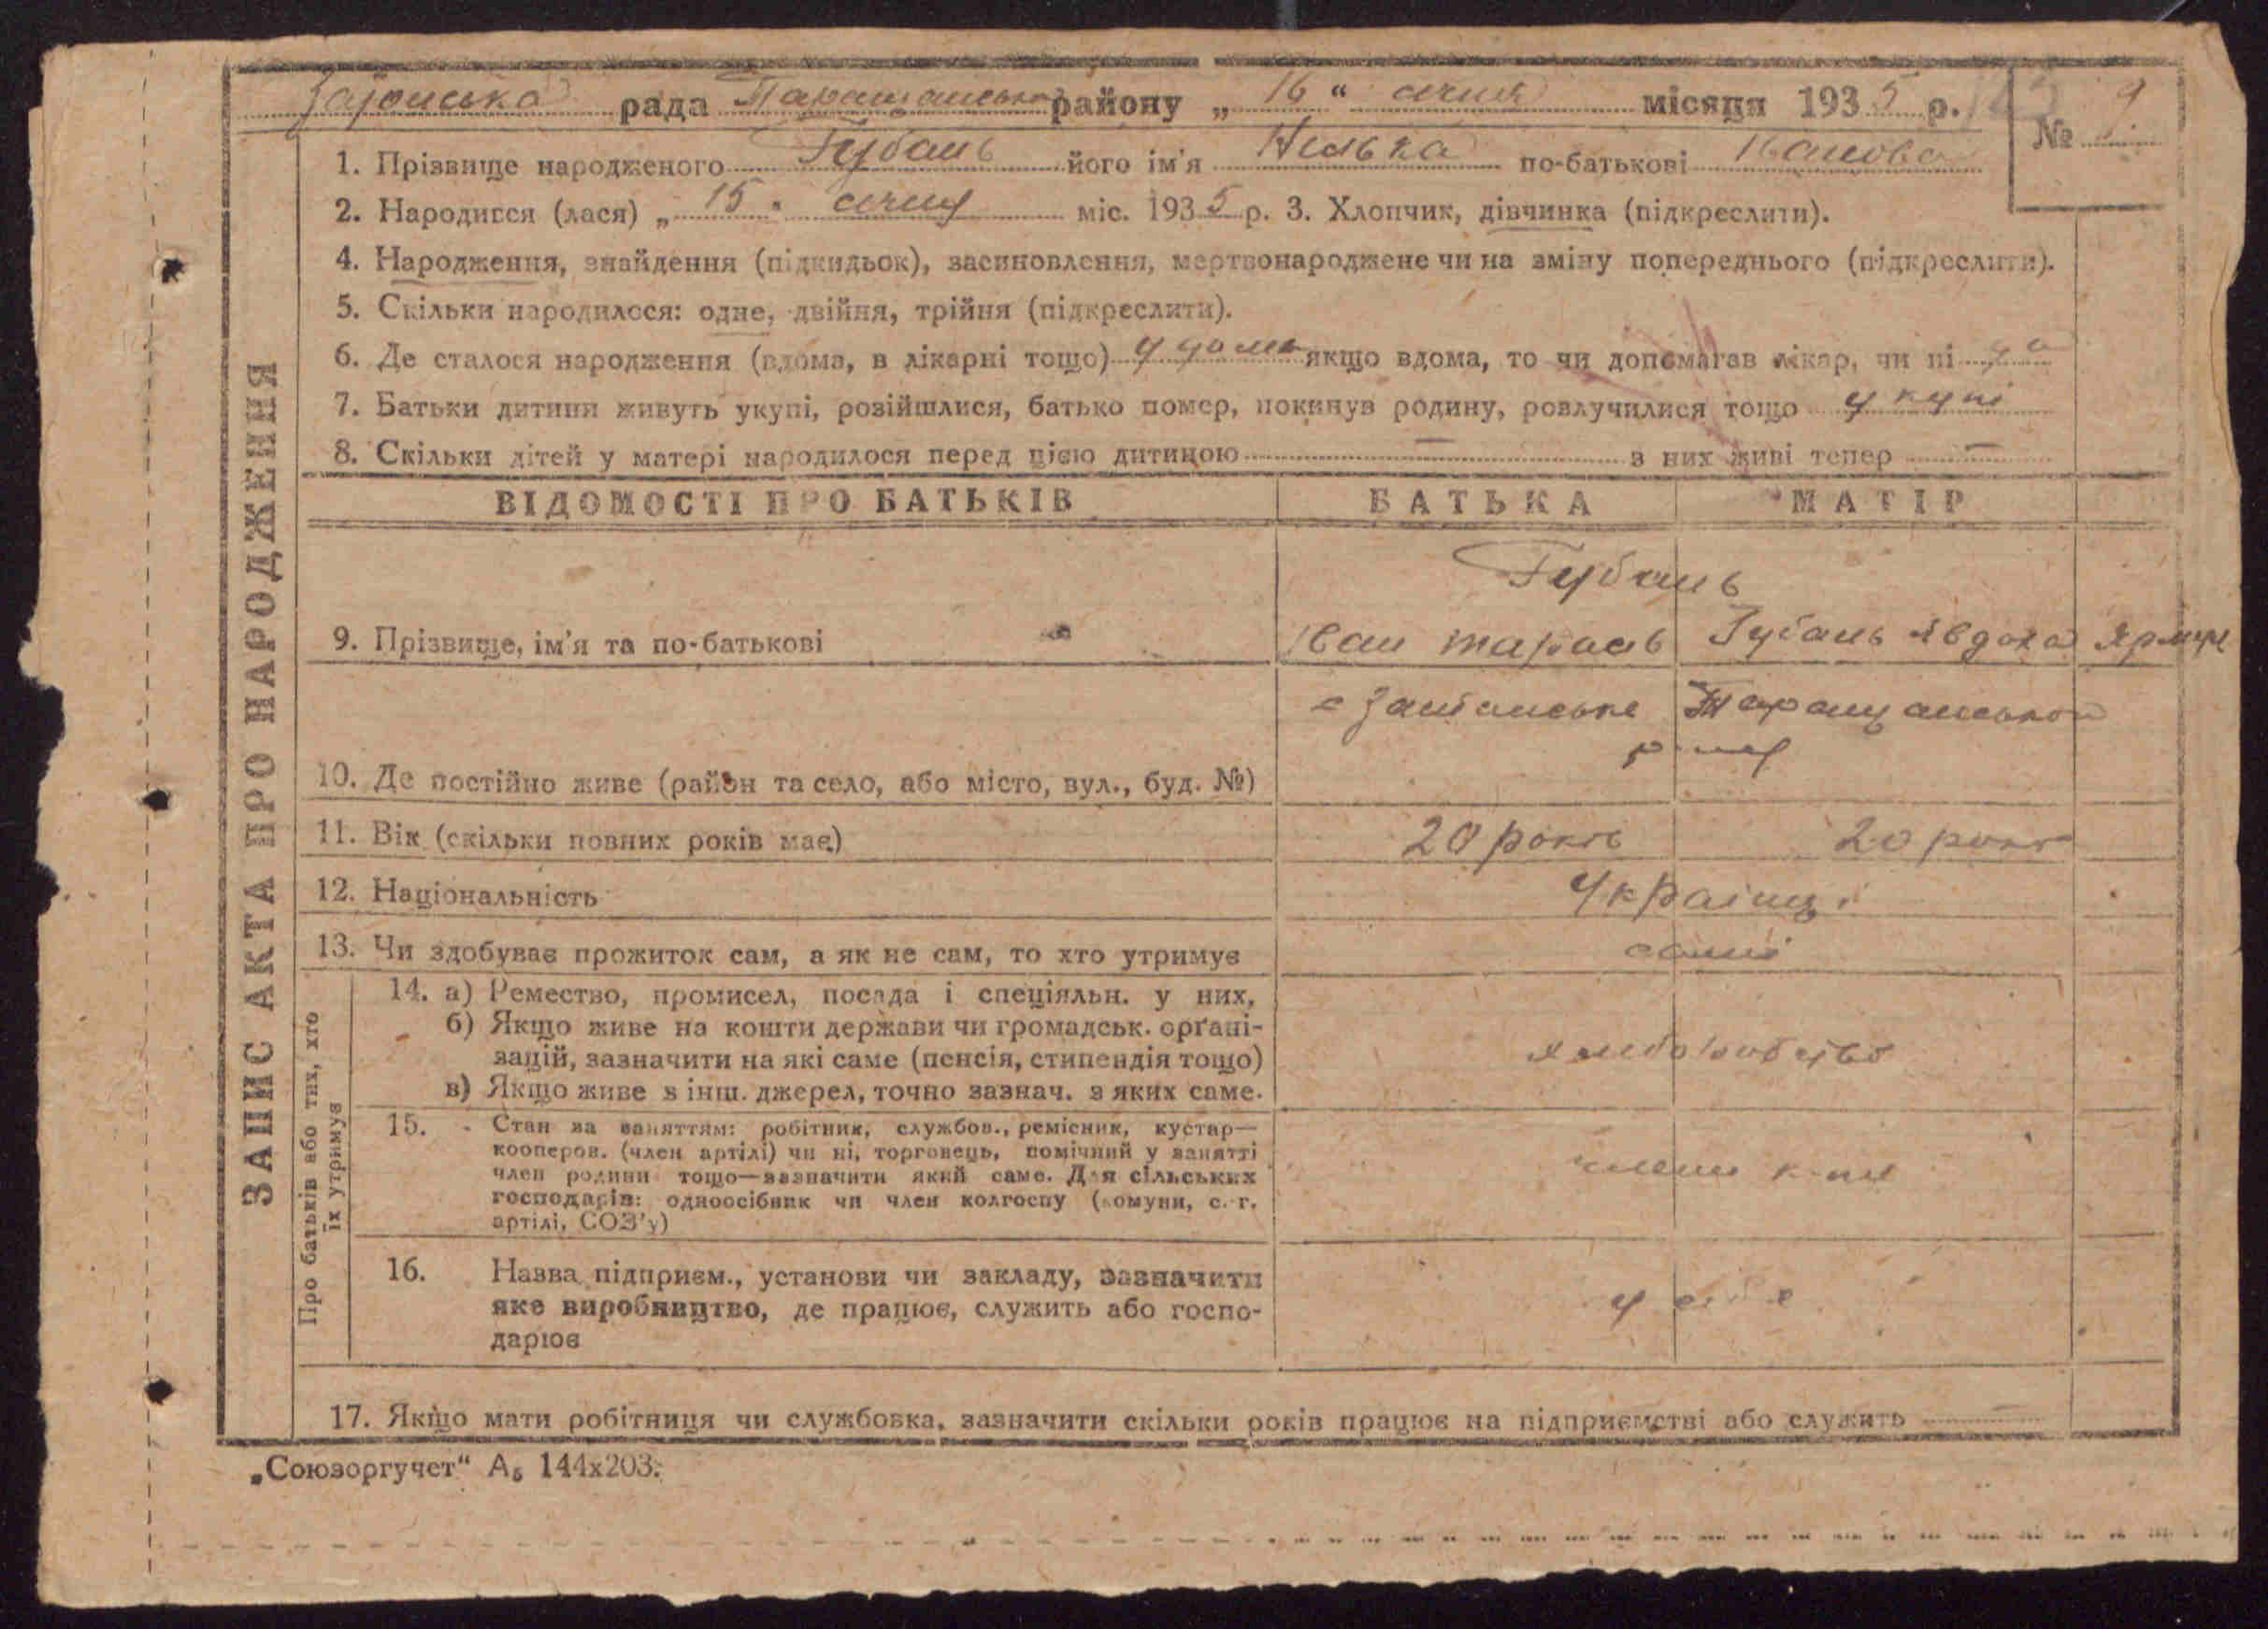 рада Таращанського району „ 16 “ січня місяця 1935 р. № 9
1. Прізвище народженого Губань його ім'я Нелька по-батькові Іванова
2. Народився (лася) „ 15 " січня міс. 1935 р. 3. Хлопчик, дівчинка (підкреслити).
4. Народження, знайдення (підкидьок), засиновлення, мертвонароджене чи на зміну попереднього (підкреслити).
5. Скільки народилося: одне, двійня, трійня (підкреслити).
6. Де сталося народження (вдома, в лікарні тощо) у дома якщо вдома, то чи допомагав лікар, чи ні
7. Батьки дитини живуть укупі, розійшлися, батько помер, покинув родину, розлучилися тощо у купі
8. Скільки дітей у матері народилося перед цією дитиною — з них живі тепер —
ВІДОМОСТІ ПРО БАТЬКІВ БАТЬКА МАТІР
Губань
9. Прізвище, ім'я та по-батькові Іван Тарасів Губань Явдоха
Таращанського
р-ну
10. Де постійно живе (район та село, або місто, вул., буд. №)
11. Вік (скільки повних років має) 20 років 20 років
12. Національність Українці
13. Чи здобуває прожиток сам, а як не сам, то хто утримує самі
14. а) Ремество, промисел, посада і спеціяльн. у них,
б) Якщо живе на кошти держави чи громадськ. орґані-
зацій, зазначити на які саме (пенсія, стипендія тощо)
в) Якщо живе з інш. джерел, точно зазнач. з яких саме.
хліборобство
15. Стан за заняттям: робітник, службов., ремісник, кустар—
кооперов. (член артілі) чи ні, торговець, помічний у занятті
член родини тощо—зазначити який саме. Для сільських
господарів: одноосібник чи член колгоспу (комуни, с.-г.
артілі, СОЗ'у)
члени
16. Назва підприєм., установи чи закладу, зазначити
яке виробництво, де працює, служить або госпо-
дарює
у себе
17. Якщо мати робітниця чи службовка, зазначити скільки років працює на підприємстві або служить
ЗАПИС АКТА ПРО НАРОДЖЕННЯ
Про батьків або тих, хто
їх утримує
„Союзоргучет“ А₅ 144х203.